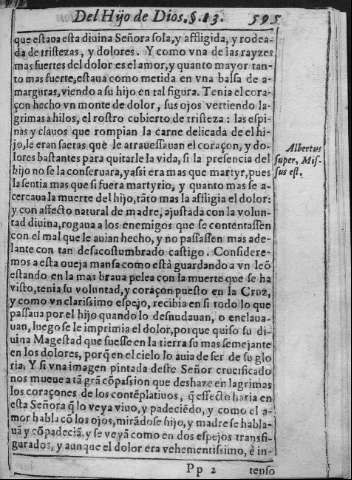 Del Hijo de Dios. §. 13. 595
que estaua esta diuina Señora sola, y affligida, y rodea-
da de tristezas, y dolores. Y como vna de las rayzes
mas fuertes del dolor es el amor, y quanto mayor tan-
to mas fuerte, estaua como metida en vna balsa de a-
marguras, viendo a su hijo en tal figura. Tenia el cora-
çon hecho vn monte de dolor, sus ojos vertiendo la-
grimas a hilos, el rostro cubierto de tristeza: las espi-
nas y clauos que rompian la carne delicada de el hi-
jo, le eran saetas que le atrauessauan el coraçon, y do-
lores bastantes para quitarle la vida, si la presencia del
hijo no se la conseruara, y assi era mas que martyr, pues
la sentia mas que si fuera martyrio, y quanto mas se a-
cercaua la muerte del hijo, tãto mas la affligia el dolor:
y con affecto natural de madre, ajustada con la volun-
tad diuina, rogaua a los enemigos que se contentassen
con el mal que le auian hecho, y no passassen mas ade-
lante con tan desacostumbrado castigo. Considere-
mos a esta oueja mansa como està guardando a vn leõ
estando en la mas braua pelea con la muerte que se ha
visto, tenia su voluntad, y coraçon puesto en la Cruz,
y como vn clarissimo espejo, recibia en si todo lo que
passaua por el hijo quando lo desnudauan, o enclaua-
uan, luego se le imprimia el dolor, porque quiso su di-
uina Magestad que fuesse en la tierra su mas semejante
en los dolores, porq̃ en el cielo lo auia de ser de su glo
ria. Y si vna imagen pintada deste Señor crucificado
nos mueue a tã grã cõpassion que deshaze en lagrimas
los coraçones de los contẽplatiuos, q̃ effecto haria en
esta Señora q̃ lo veya viuo, y padeciẽdo, y como el a-
mor habla cõ los ojos, mirãdose hijo, y madre se habla-
uã y cõpadeciã, y se veyã como en dos espejos transfi-
gurados, y aunque el dolor era vehementissimo, è in-
Pp 2 tenso
Albertus
super, Mis-
sus est.